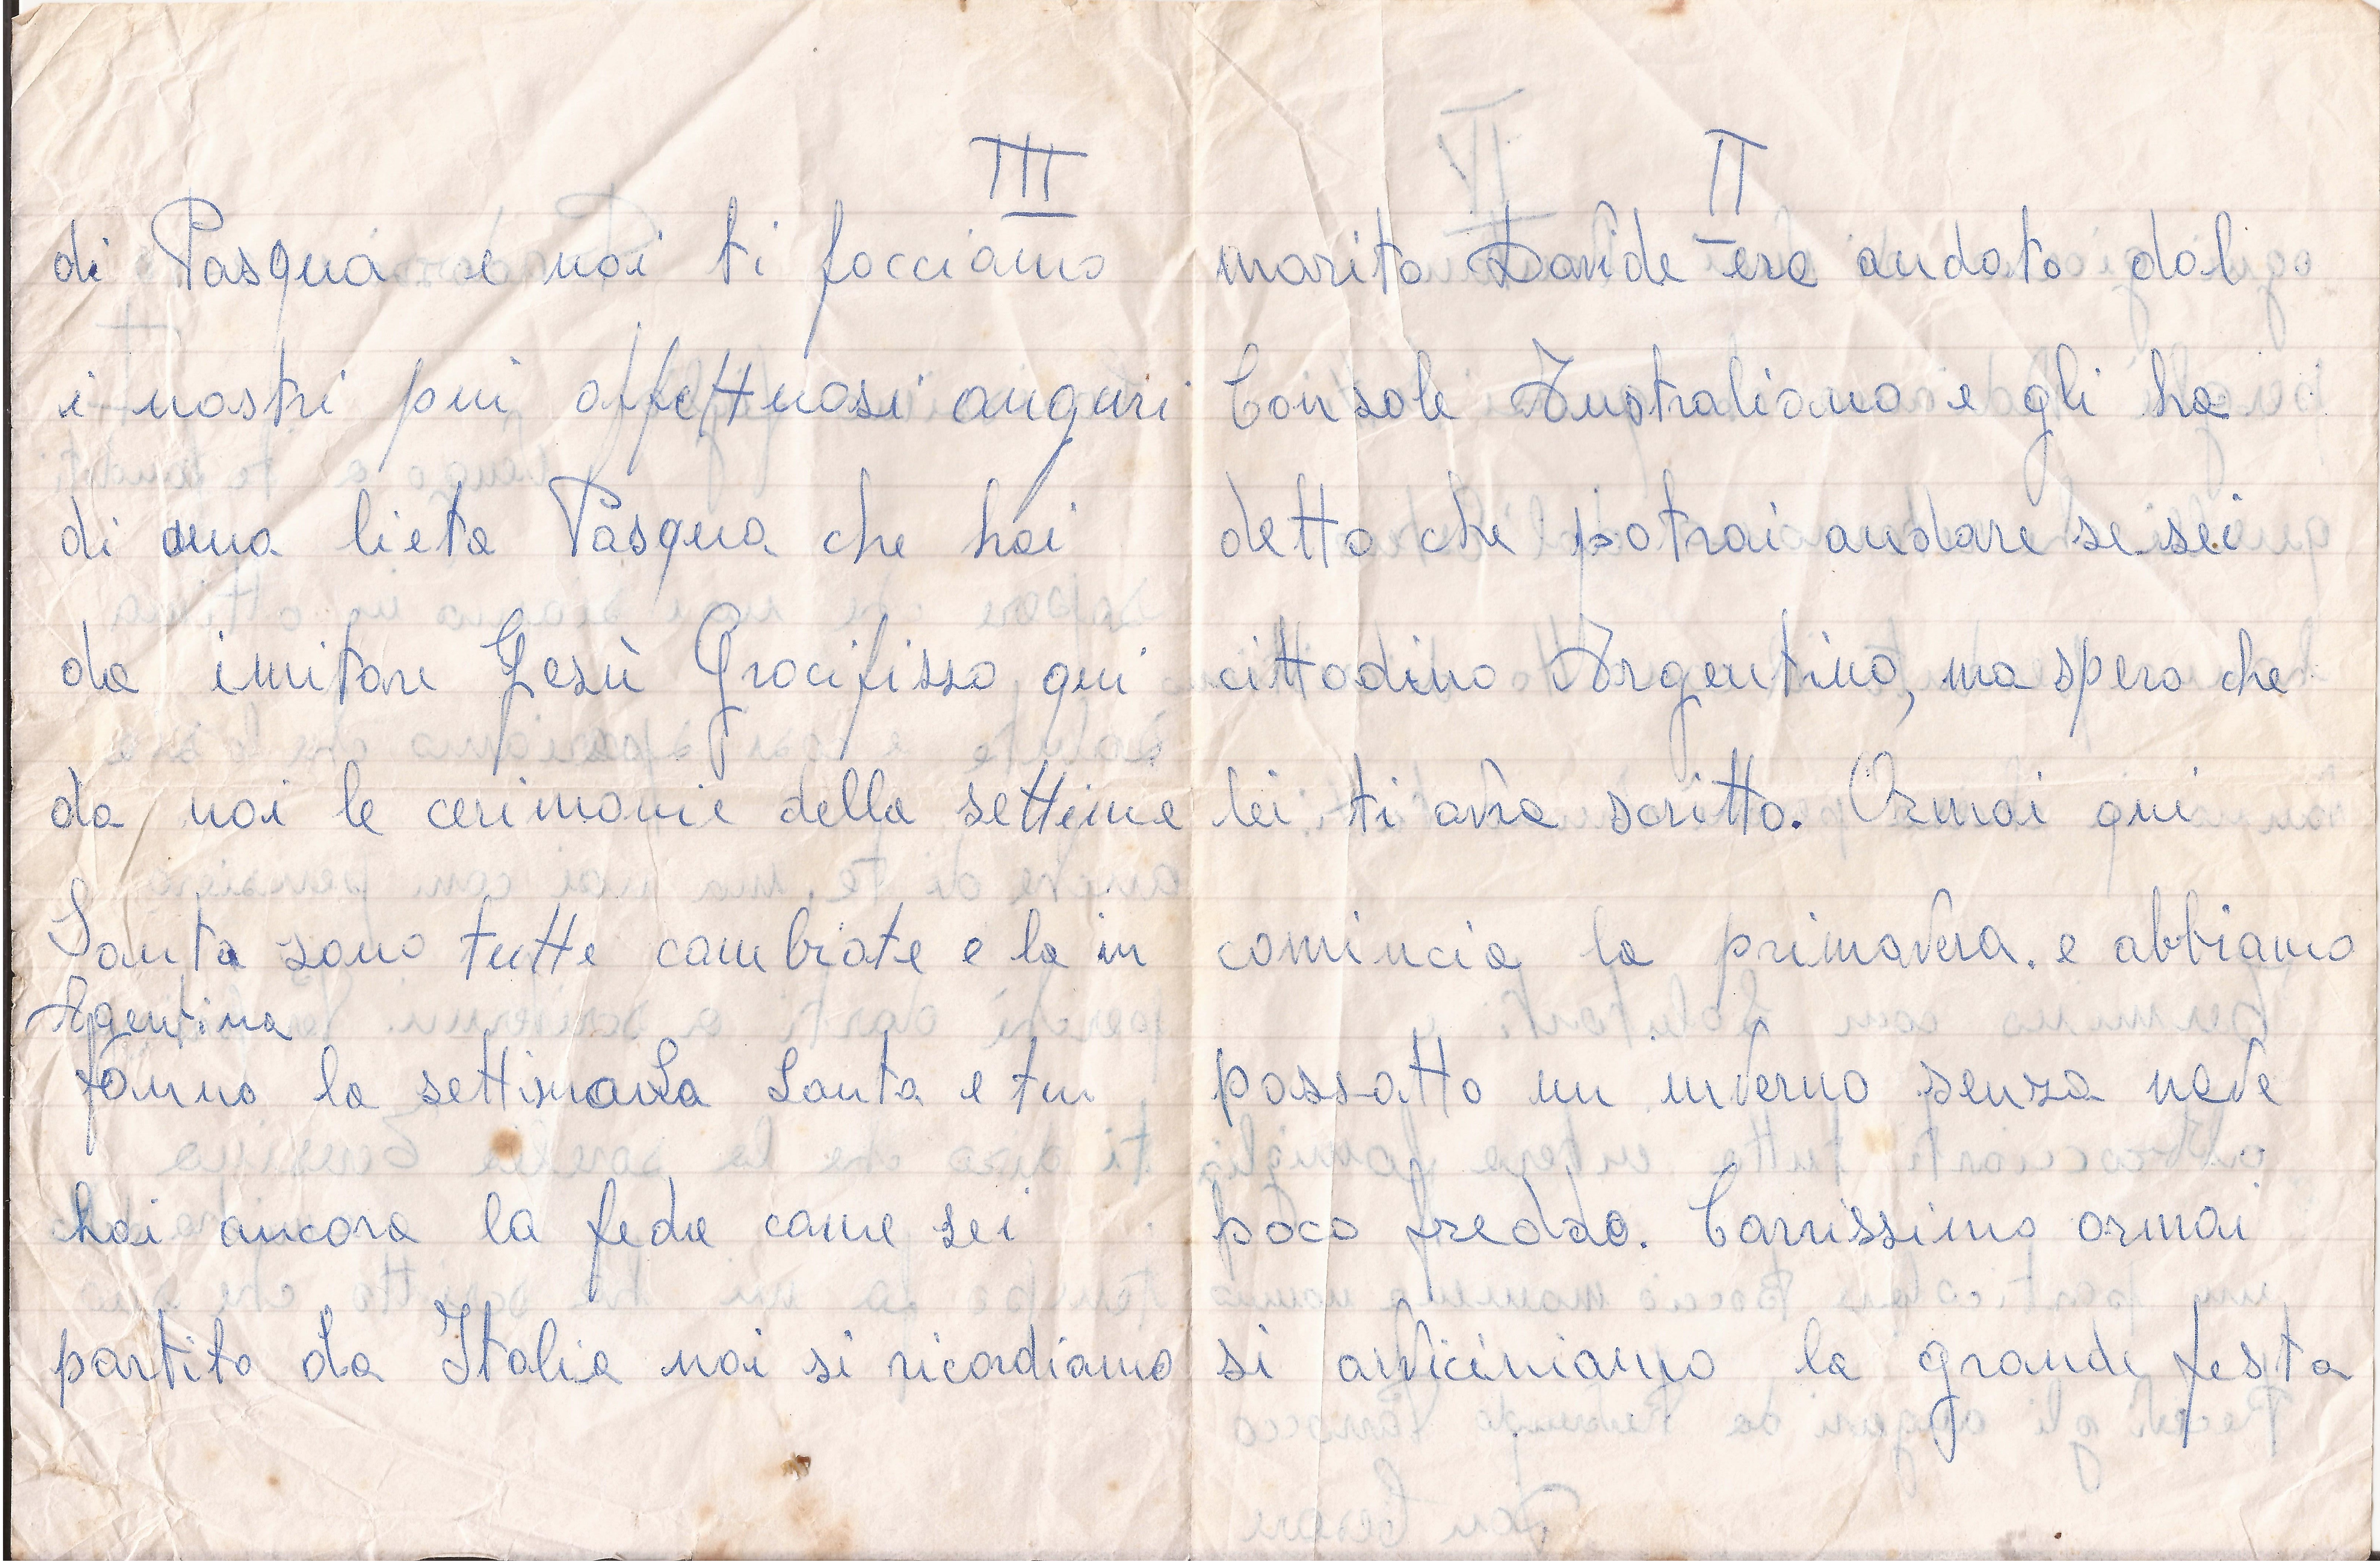 II
marito Davide era andato dal
Console Australiano e gli ha
detto che potrai andare se sei
cittadino Argentino, ma spero che
lei ti avra scritto. Ormai qui
comincia la primavera. e abbiamo
passatto un inverno senza neve
poco freddo. Carissimo ormai
si avviciniamo la grande festa
III
di Pasqua e noi ti facciamo
i nostri piu affettuosi auguri
di una lieta Pasqua che hai
da imitare Gesù Crocifisso qui
da noi le cerimonie della settima
Santa sono tutte cambiate e la in
Agentina
fanno la settimana Santa e tu
hai ancora la fede come sei
partito da Italia noi si ricordiamo